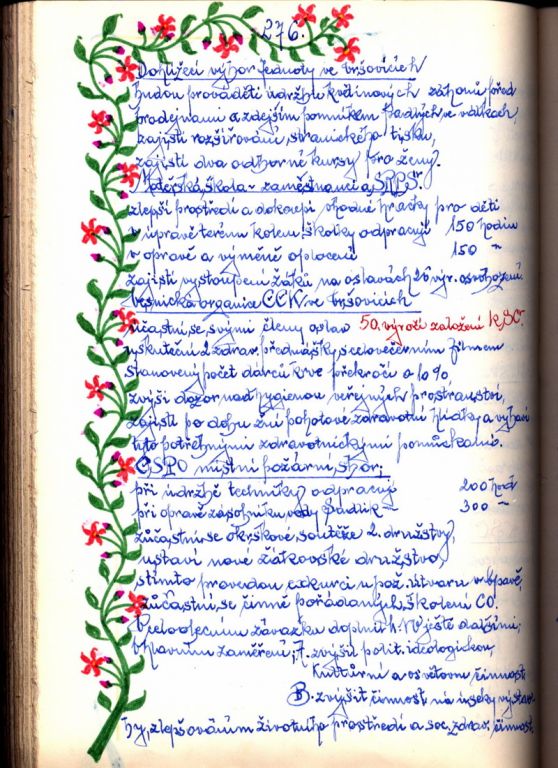 276.
Dohlížecí výbor Jednoty ve Vršovicích
budou prováděti údržbu květinových záhonů před
prodejnami a zdejším pomníkem padlých ve válkách,
zajistí rozšiřování stranického tisku,
zajistí dva odborné kursy pro ženy.
Mateřská škola - zaměstnanci a SRPŠ:
zlepší prostředí a dokoupí vhodné hračky pro děti
v úpravě terénu kolem školky odpracují 150 hodin
v opravě a výměně oplocení 150 "
zajistí vystoupení žáků na oslavách 26 výr. osvobození
Vesnická organice ČČK ve Vršovicích
účastní se svými členy oslav 50. výročí založení KSČ.
uskuteční 2 zdrav. přednášky s celovečerním filmem
stanovený počet dárců krve překročí o 10%
zvýší dozor nad hygienou veřejných prostranství,
zajistí po dobu žní pohotové zdravotní hlídky a vybaví
tyto potřebnými zdravotnickými pomůckami.
ČSPO místní požární sbor:
při údržbě techniky odpracují 200 hod
při opravě zásobníku vody Sádlik 300 "
zúčastní se okrskové soutěže 2. družstvy,
ustaví nové žákovské družstvo,
s tímto provedou exkurci u pož. útvaru v Opavě,
zúčastní se činně pořádaných školení CO.
V celoobecním závazku doplnit ještě dalšími:
hlavním zaměření: 7. zvýšit polit. ideologickou,
kulturní a osvětovou činnost
B. zvýšit činnost na úseku výstav-
by, zlepšováním životního prostředí a soc. zdrav. činnost.